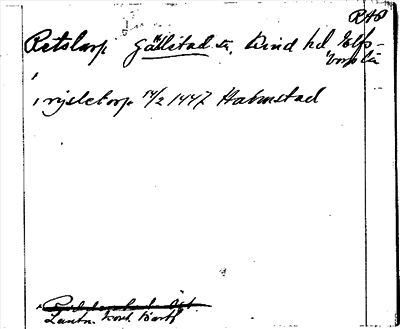 RAP
Retstarp Gällstad sn. Kind hd, Elfs-
borgs län
i rysletorp 14/2 1447 Halmstad
Lantm. kont. kart